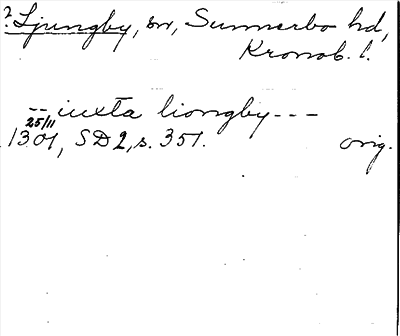 ? Ljungby, sn, Sunnerbo hd,
Kronob. l.
-- iuxta liongby ---
25/11
1301, SD 2, s. 351. orig.